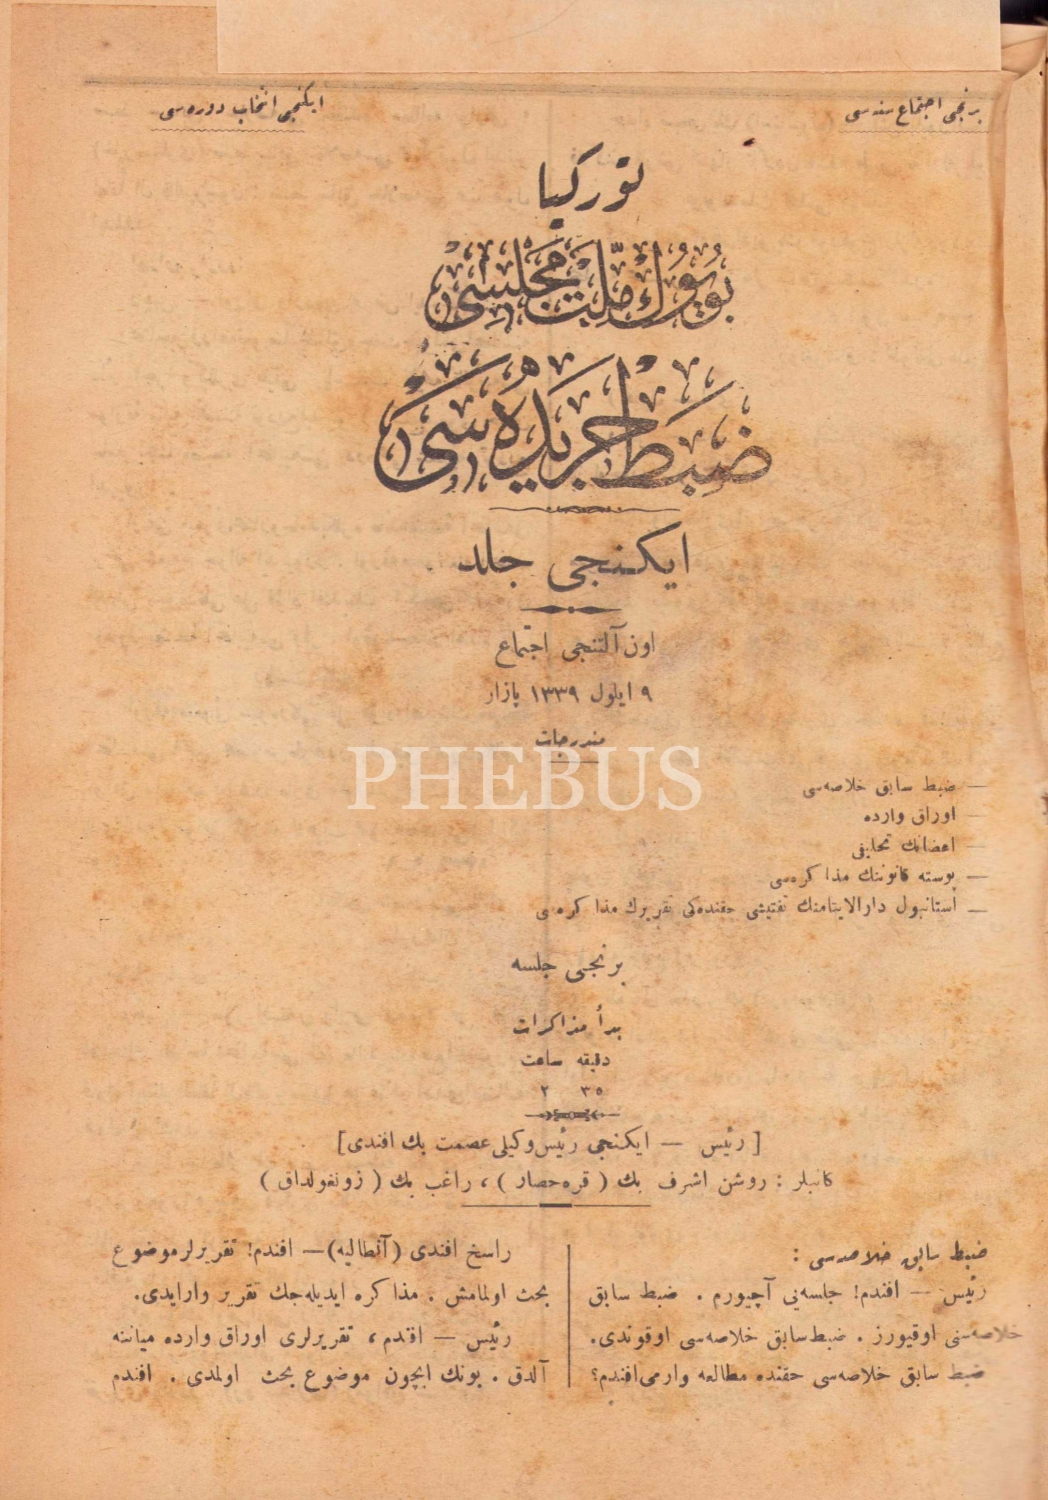 برنجی اجتماع سنه سی
ایکنجی انتخاب دوره سی
تورکیا
بویوك ملت مجلسی
ضبط جریده سی
ایکنجی جلد
اون آلتنجی اجتماع
٩ ایلول ١٣٣٩ پازار
مندرجات
PHEBUS
— ضبط سابق خلاصه سی
— اوراق وارده
— اعضانك تحلیفی
— پوسته قانوننك مذاکره سی
— استانبول دارالایتامنك تفتیشی حقنده کی تقریرك مذاکره سی
برنجی جلسه
بدأ مذاکرات
دقیقه ساعت
٣٥ ٢
[ رئیس — ایکنجی رئیس وکیلی عصمت بك افندی]
کاتبلر : روشن اشرف بك ( قره حصار ) ، راغب بك ( زونغولداق )
ضبط سابق خلاصه سی :
رئیس — افندم! جلسه یی آچیورم . ضبط سابق
خلاصه سنی اوقیورز . ضبط سابق خلاصه سی اوقوندی.
ضبط سابق خلاصه سی حقنده مطالعه وارمی افندم؟
راسخ افندی (آنطالیه)— افندم! تقریرلر موضوع
بحث اولمامش . مذاکره ایدیله جك تقریر وار ایدی.
رئیس — افندم ، تقریرلری اوراق وارده میاننه
آلدق . بونك ایچون موضوع بحث اولمدی . افندم